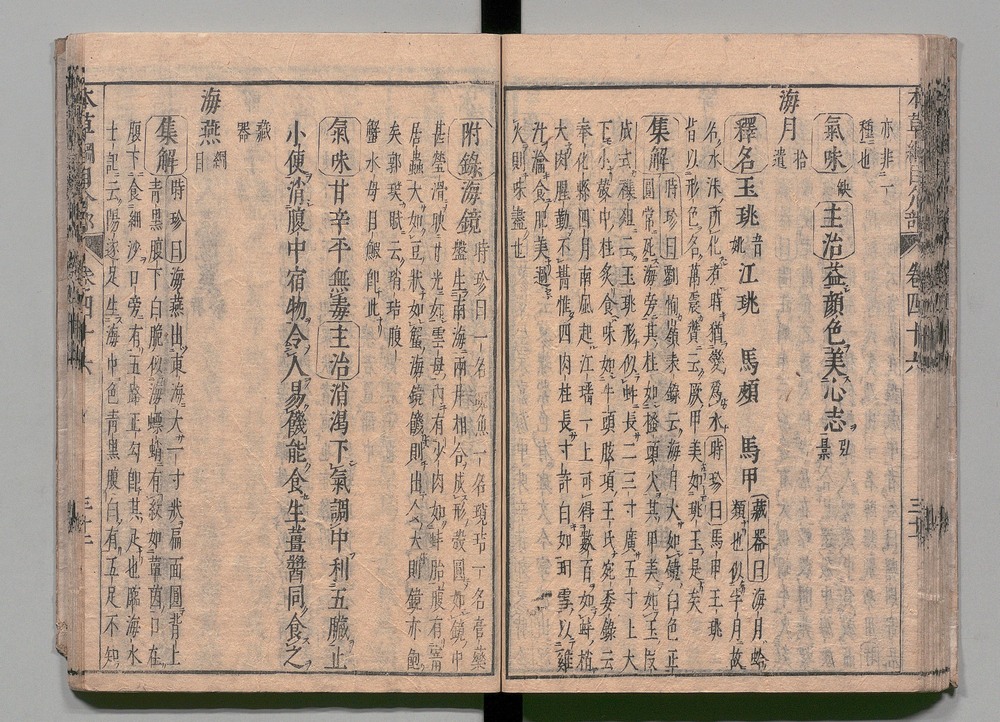 亦非一
種也
氣味缺主治益顏色美心志弘景
海月拾遺
釋名玉珧音姚江珧 馬頰 馬甲藏器曰海月蛤
類也似半月故
名水沫所化煮時猶變爲水時珍曰馬甲玉珧
皆以形色名萬震贊云厥甲美如珧玉是矣
集解時珍曰劉恂嶺表錄云海月大如鏡白色正
圓常死海旁其柱如搔頭尖其甲美如玉段
成式雜俎云玉珧形似蚌長二三寸廣五寸上大
下小殼中柱炙食味如牛頭胘項王氏宛委錄云
奉化縣四月南風起江珧一上可得數百如蚌稍
大肉腥韌不堪惟四肉柱長寸許白如珂雪以雞
汁瀹食肥美過
火則味盡也
附錄海鏡時珍曰一名鏡魚一名瑣琂一名膏藥
盤生南海兩片相合成形殼圓如鏡中
甚瑩滑映日光如雲母內有少肉如蚌胎腹有寄
居蟲大如豆狀如蟹海鏡饑則出食入則鏡亦飽
矣郭璞賦云瑣琂腹
蟹水母目鰕卽此
氣味甘辛平無毒主治消渴下氣調中利五臟止
小便消腹中宿物令人易饑能食生薑醬同食之
藏
器
海燕綱目
集解時珍曰海燕出東海大一寸狀扁面圓背上
青黑腹下白脆似海螵蛸有紋如蕈茵口在
腹下食細沙口旁有五路正勾卽其足也臨海水
土記云陽遂足生海中色青黑腹白有五足不知
本草綱目介部 卷四十六